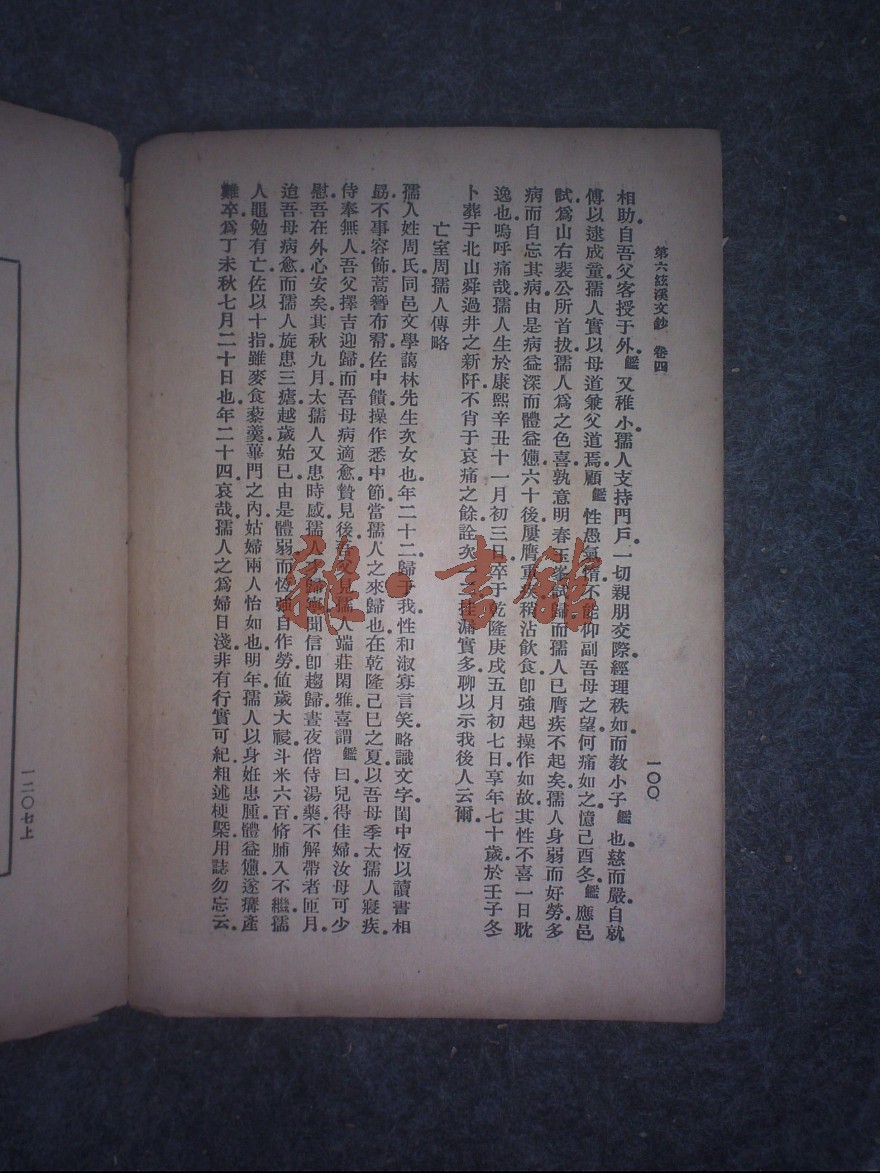 第六絃溪文鈔 卷四
一〇〇
相助自吾父客授于外鑑又稚小孺人支持門戶一切親朋交際經理秩如而教小子鑑也慈而嚴自就
傅以逮成童孺人實以母道兼父道焉顧鑑性愚氣惰不能仰副吾母之望何痛如之憶己酉冬鑑應邑
試爲山右裴公所首拔孺人爲之色喜孰意明春玉峯試歸而孺人已膺疾不起矣孺人身弱而好勞多
病而自忘其病由是病益深而體益憊六十後屢膺重疾稍沾飲食卽強起操作如故其性不喜一日耽
逸也嗚呼痛哉孺人生於康熙辛丑十一月初三日卒于乾隆庚戌五月初七日享年七十歲於壬子冬
卜葬于北山舜過井之新阡不肖于哀痛之餘詮次之挂漏實多聊以示我後人云爾
亡室周孺人傳略
孺人姓周氏同邑文學藹林先生次女也年二十二歸于我性和淑寡言笑略識文字閨中恆以讀書相
勗不事容飾蒿簪布帬佐中饋操作悉中節當孺人之來歸也在乾隆己巳之夏以吾母季太孺人寢疾
侍奉無人吾父擇吉迎歸而吾母病適愈贄見後吾父見孺人端莊閑雅喜謂鑑曰兒得佳婦汝母可少
慰吾在外心安矣其秋九月太孺人又患時感孺人才歸寧聞信卽趨歸晝夜偕侍湯藥不解帶者匝月
迨吾母病愈而孺人旋患三瘧越歲始已由是體弱而恆強自作勞値歲大祲斗米六百脩脯入不繼孺
人黽勉有亡佐以十指雖麥食藜羹蓽門之內姑婦兩人怡如也明年孺人以身妊患腫體益憊遂痗產
難卒爲丁未秋七月二十日也年二十四哀哉孺人之爲婦日淺非有行實可紀粗述梗槩用誌勿忘云
一二〇七上
雜·書館